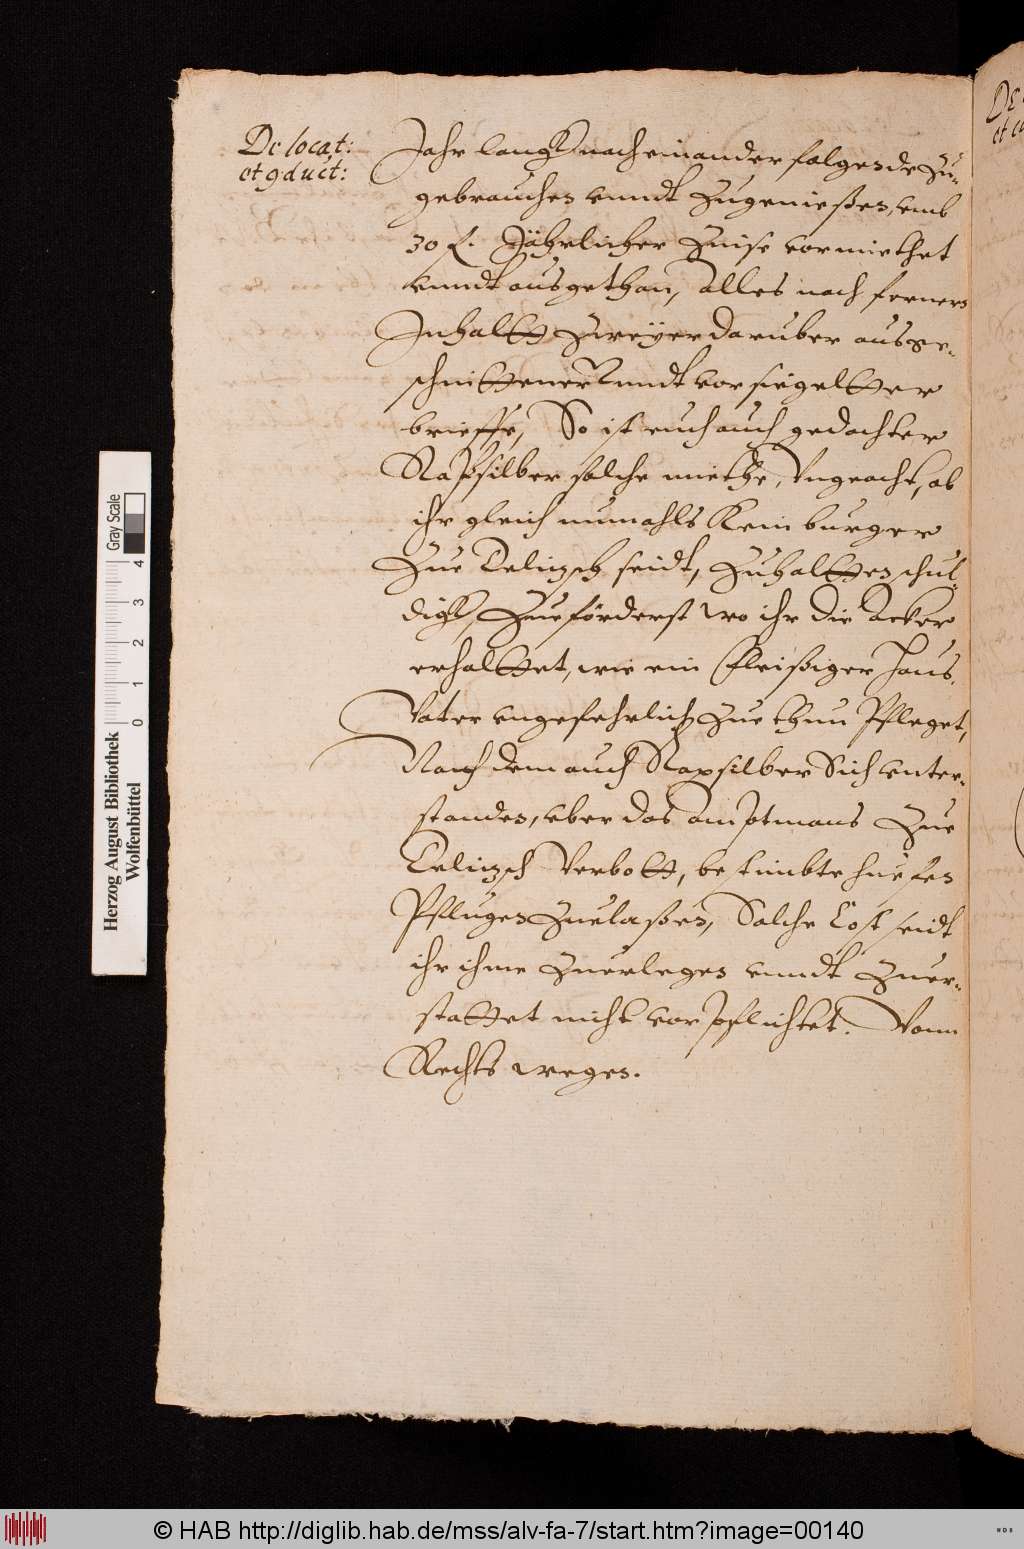 De locat:
et 9duct:
Jahr langk nacheinander folgende Zu-
gebrauchen unndt Zugenießen, umb
30 f. Jährlicher Zinse vormiethet
unndt ausgethan, alles nach fernern
Inhaltt Zweyer daruber ausge-
schnittener unndt vorsiegeltter
brieffe, So ist euch auch gedachter
Rapsilber solche miethe, Ungeacht, ob
ihr gleich numahls Kein burger
Zue Delitzsch seidt, Zuhaltten schul-
digk, Zueförderst wo ihr die Acker
erhaltet, wie ein fleißiger Haus-
Vater ungefehrlich Zue thun Pfleget,
Nach dem auch Rapsilber Sich unter-
standen, uber das amptmans Zue
Delitzsch Verbott, bestimbte huefen
Pflugen Zuelaßen, Solche Cost seidt
ihr ihme Zuerlegen unndt Zuer-
stattet nicht vorpflichtet. Vonn
Rechts wegen.
Herzog August Bibliothek
Wolfenbüttel
0 1 2 3 4
Gray Scale
© HAB http://diglib.hab.de/mss/alv-fa-7/start.htm?image=00140